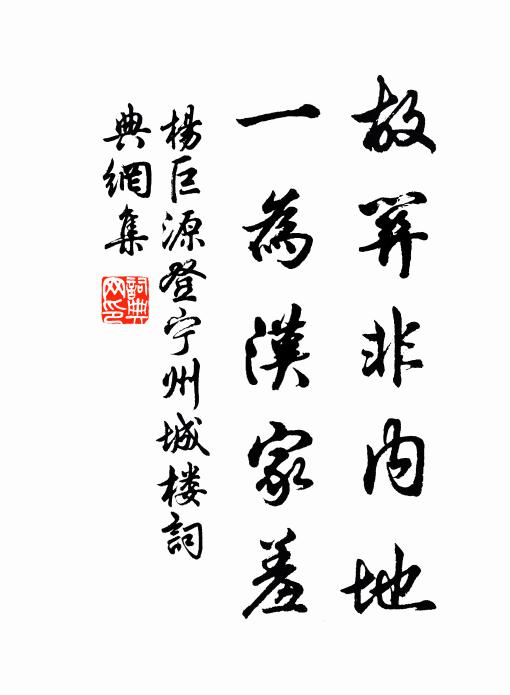 故関非内地
一為漢家羞
楊巨源登宁州城楼詞
典網集
詞典
网印